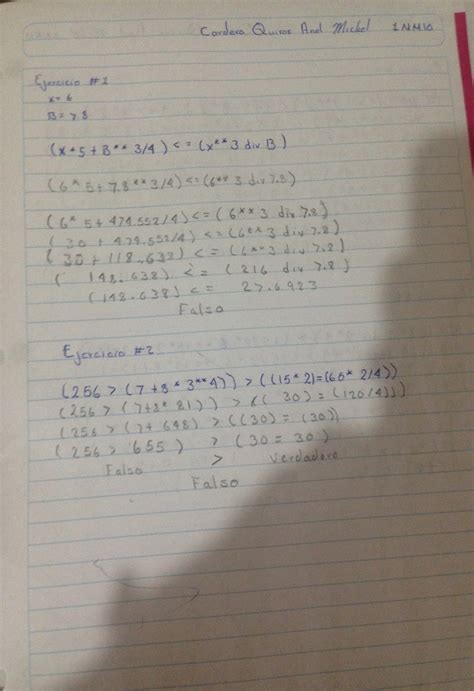 Cordero Quiros Anel Mickel 1NM10
Ejercicio #1
x= 6
B= 7.8
(x*5+B** 3/4) <= (x** 3 div B)
(6* 5+7.8**3/4) <= (6** 3 div 7.8)
(6* 5+474.552/4) <= (6** 3 div 7.8)
(30 + 474.552/4) <= (6** 3 div 7.8)
(30 + 118.638) <= (6** 3 div 7.8)
( 148.638) <= (216 div 7.8)
(148.638) <= 27.6923
Falso
Ejercicio #2
(256 > (7+8* 3**4)) > ((15* 2)=(60* 2/4))
(256 > (7+8* 81)) > (( 30) = (120/4))
(256 > (7+ 648) > ((30) = (30))
(256 > 655 ) > (30 = 30)
Falso > Verdadero
Falso